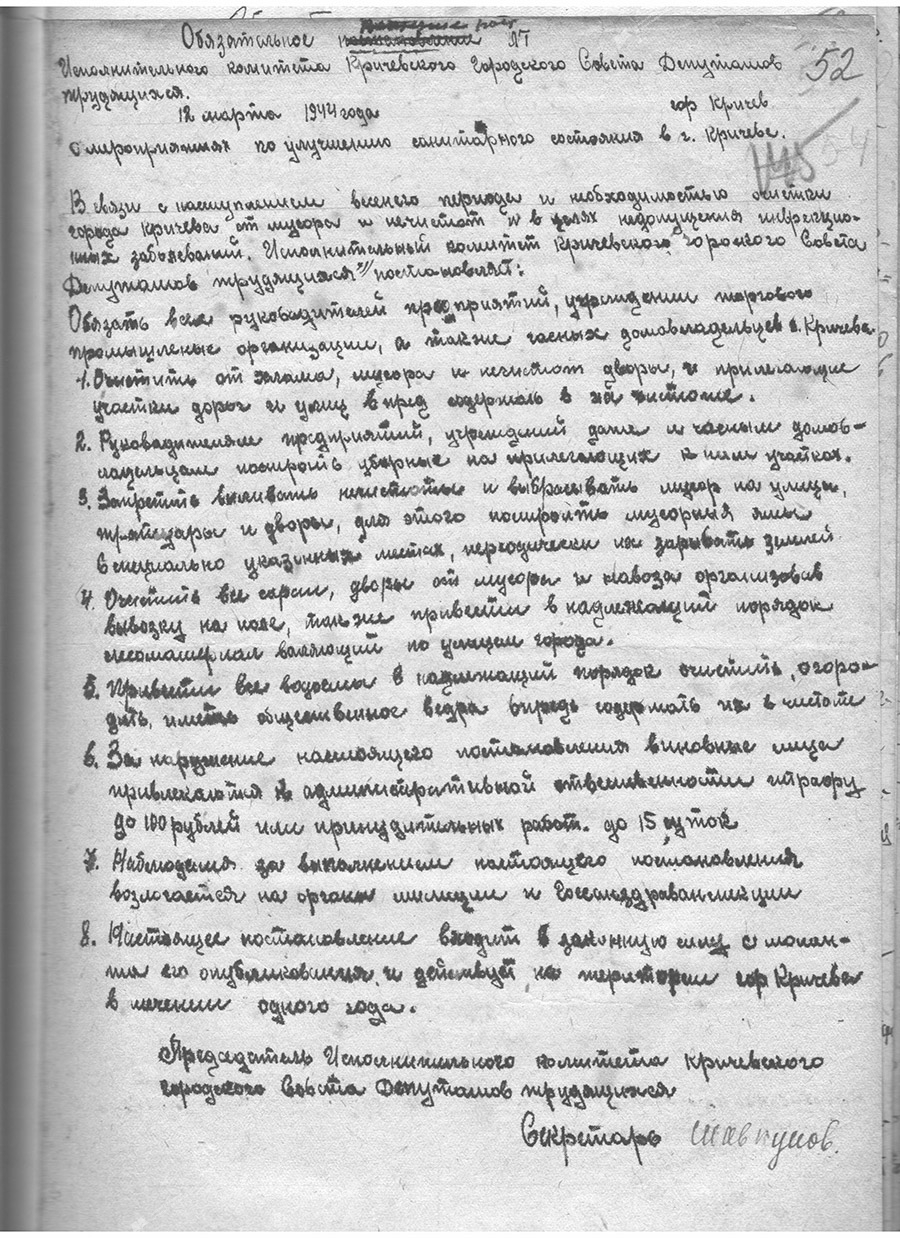 Обязательное постановление №
Исполнительного комитета Кричевского Городского Совета Депутатов
трудящихся.
52
12 марта 1944 года гор Кричев
о мероприятиях по улучшению санитарного состояния в г. Кричеве.
54
В связи с наступлением весенего периода и необходимостью очистки
города Кричева от мусора и нечистот и в целях недопущения инфекцио-
ных забоеваний. Исполнительный комитет Кричевского городского Совета
Депутатов трудящихся постановляет:
Обязать всех руководителей предприятий, учреждении торгового
промышленые организации, а также часных домовладельцев г. Кричева.
1. Очистить от хлама, мусора и нечистот дворы, и прилегающие
участки дорог и улиц впред содержать в чистоте.
2. Руководителям предприятий, учреждений даче и часным домов-
ладельцам построить уборные на прилегающих к ним участках.
3. Запретить выливать нечистоты и выбрасывать мусор на улицы,
тратуары и дворы, для этого построить мусорныя ямы
в специально указанных местах, переодически их зарывать землей.
4. Очистить все сараи, дворы от мусора и навоза организовав
вывозку на поле, также привести в надлежащий порядок
лесоматериал валяющий по улицам города.
5. Привести все водоемы в надлежащий порядок очистить, огоро-
дить, иметь общественное ведра впредь содержать их в чистоте
6. За нарушение настоящего постановления виновные лица
привлекаются к административной отвественности штрафу
до 100 рублей или принудительных работ. до 15 суток
7. Наблюдения за выполнением настоящего постановления
возлогается на органы милиции и Госсанздравинспекции
8. Настоящее постановление входит в законную силу с момен-
та его опубликования и действует на територии гор Кричева
в течении одного года.
Председатель Исполнительного комитета Кричевского
городского Совета Депутатов трудящихся
Секретарь